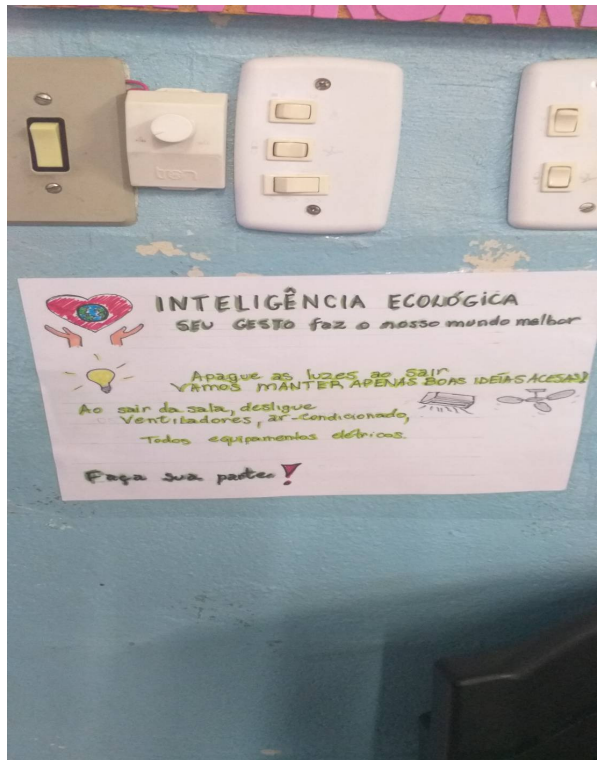 INTELIGÊNCIA ECOLÓGICA
SEU GESTO faz o nosso mundo melhor
Apague as luzes ao sair
VAMOS MANTER APENAS BOAS IDÉIAS ACESAS!
Ao sair da sala, desligue
Ventiladores, ar-condicionado,
Todos equipamentos elétricos
Faça sua parte!